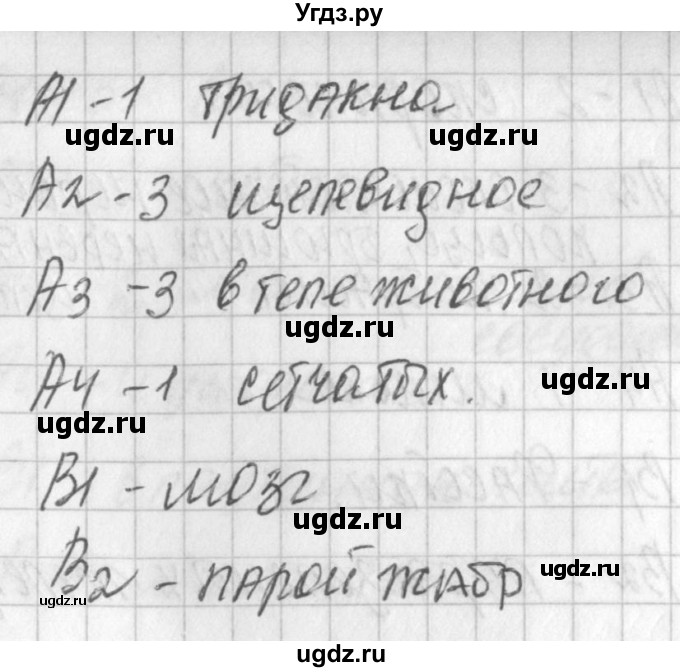 Угдз.ру
А1 - 1 тридакна
ugdz.ru ugdz.ru
А2 - 3 щелевидное
А3 - 3 в теле животного
ugdz.ru
А4 - 1 сетчатых.
ugdz.ru ugdz.ru
В1 - мозг
ugdz.ru
В2 - парой жабр
ugdz.ru ugdz.ru
ugdz.ru